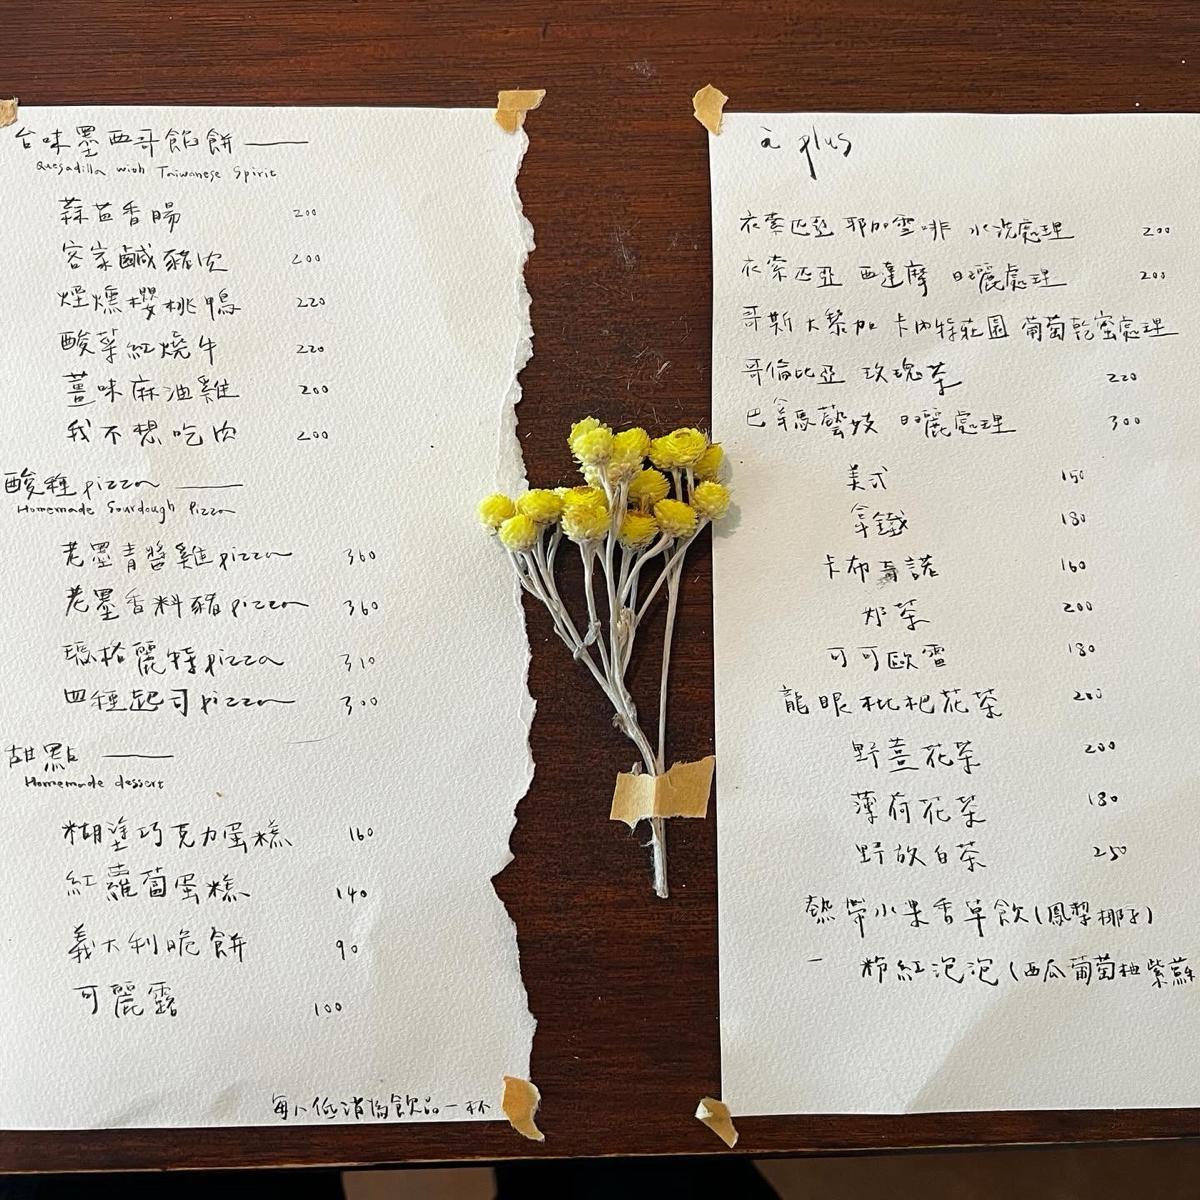 台味墨西哥餡餅
Quesadilla with Taiwanese Spirit
蒜苗香腸 200
客家鹹豬肉 200
煙燻櫻桃鴨 220
酸菜紅燒牛 220
薑味麻油雞 200
我不想吃肉 200
酸種pizza
Homemade Sourdough Pizza
老墨青醬雞pizza 360
老墨香料豬pizza 360
瑪格麗特pizza 310
四種起司pizza 300
甜點
Homemade dessert
糊塗巧克力蛋糕 160
紅蘿蔔蛋糕 140
義大利脆餅 90
可麗露 100
每人低消為飲品一杯
plus
衣索匹亞 耶加雪啡 水洗處理 200
衣索匹亞 西達摩 日曬處理 200
哥斯大黎加 卡內特莊園 葡萄乾蜜處理
哥倫比亞 玫瑰茶 220
巴拿馬藝妓 日曬處理 300
美式 150
拿鐵 180
卡布奇諾 160
奶茶 200
可可歐蕾 180
龍眼枇杷花茶 200
野薑花茶 200
薄荷花茶 180
野放白茶 250
熱帶水果香草飲(鳳梨椰子)
粉紅泡泡(西瓜葡萄柚紫蘇